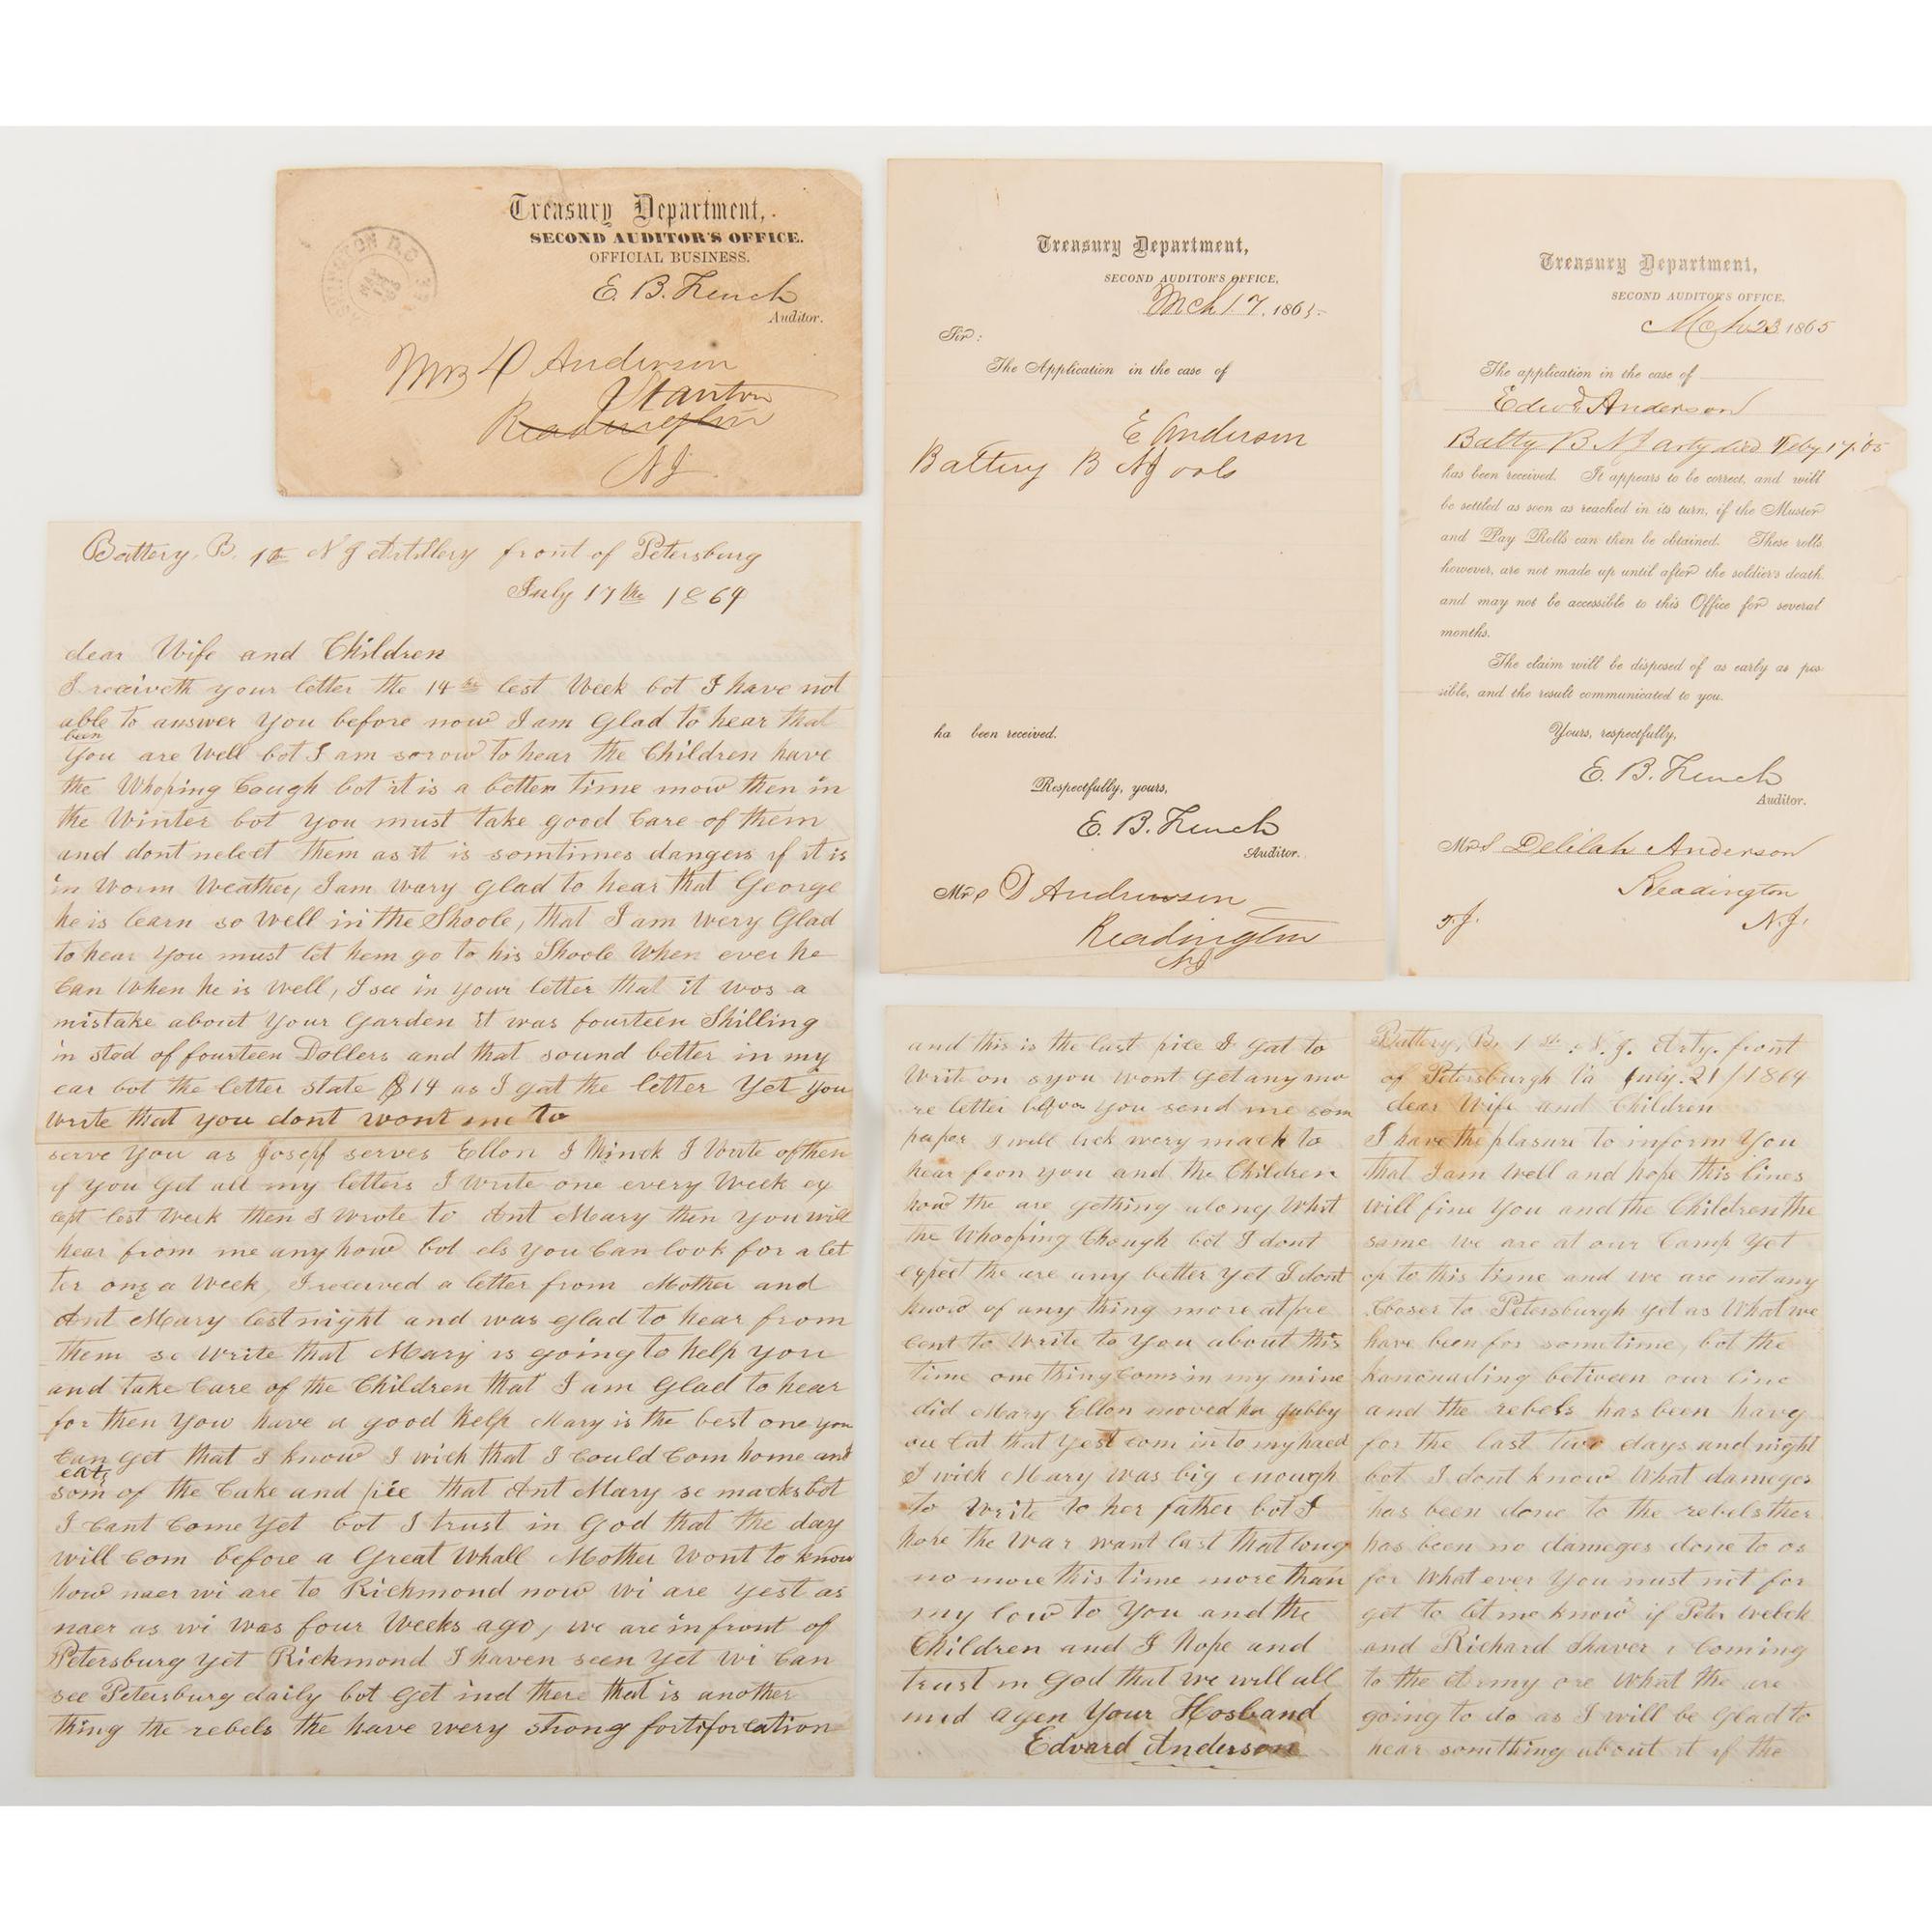 Treasury Department,
SECOND AUDITOR'S OFFICE.
OFFICIAL BUSINESS.
E. B. French
Auditor.
WASHINGTON D.C.
Mrs D Anderson
Stanton
Readington
N J
Treasury Department,
SECOND AUDITOR'S OFFICE,
Mch 17, 1865
Sir:
The Application in the case of
E Anderson
Battery B NJ vols
ha been received.
Respectfully, yours,
E. B. French
Auditor.
Mrs D Anderson
Readington
NJ
Treasury Department,
SECOND AUDITOR'S OFFICE,
Mch 23 1865
The application in the case of
Edwd Anderson
Batty B NJ arty died Feby 17, '65
has been received. It appears to be correct, and will
be settled as soon as reached in its turn, if the Muster
and Pay Rolls can then be obtained. These rolls,
however, are not made up until after the soldier's death,
and may not be accessible to this Office for several
months.
The claim will be disposed of as early as pos-
sible, and the result communicated to you.
Yours, respectfully,
E. B. French
Auditor.
Mrs Delilah Anderson
Readington
N.J.
Battery, B. 1st N J Artillery front of Petersburg
July 17the 1864
dear Wife and Children
I receiveth your letter the 14 lest Week bot I have not
been
able to answer You before now I am Glad to hear that
You are Well bot I am sorow to hear the Children have
the Whoping Cough bot it is a better time mow then in
the Winter bot you must take good Care of them
and dont nelect them as it is somtimes dangers if it is
in Worm Weather, I am wary Glad to hear that George
he is learn so well in the Shoole, that I am Wery Glad
to hear You must let hem go to his Shoole When ever he
Can When he is Well, I see in your letter that it wos a
mistake about Your Garden it was fourteen Shilling
in stod of fourteen Dollers and that sound better in my
ear bot the letter state $14 as I gat the letter Yet You
Write that you dont wont me to
serve You as Josepf serves Ellon I thinck I Write ofthen
if you Get all my letters I write one every Week ex
cept lest Week then I Wrote to Ant Mary then You will
hear from me any how bot els You Can look for a let
ter ons a Week, I received a letter from Mother and
Ant Mary lest night and was glad to hear from
them se write that Mary is going to help you
and take Care of the Children that I am Glad to hear
for then You have a good help Mary is the best one you
Can Get that I know I wich that I Could Com home and
eat
som of the Cake and piee that Ant Mary se macks bot
I Cant Come Yet bot I trust in God that the day
will Com before a Great Whall Mother Wont to know
how naer wi are to Richmond now wi are yest as
naer as wi was four Weeks ago, we are in front of
Petersburg yet Richmond I haven seen Yet Wi Can
see Petersburg daily bot Get ind there that is another
thing the rebels the have wery strong fortiforcation
and this is the last pice I gat to
Write on s you wont Get any mo
re letter before you send me som
peaper I will lick wery mack to
hear from you and the Children
how the are gething along What
the Whooping Chough bot I dont
expect the are any better Yet I dont
know of any thing more at pre
cent to Write to You about this
time one thing Coms in my mine
did Mary Ellon moved her
ore Cat that Yest com in to my haed
I wich Mary was big enough
to Write to her father bot I
hope the War want last that long
no more this time more than
my low to You and the
Children and I Hope and
trust in God that we will all
mid agen Your Hosband
Edvard Anderson
Battery, B. 1 st. N. J. Arty. front
of Petersburgh Va July. 21/1864
dear Wife and Children
I have the plasure to inform You
that I am Well and hope this lines
will fine You and the Children the
same we are at our Camp Yet
op to this time and we are not any
Closer to Petersburgh yet as What we
have been for sometime, bot the
kanonading between our line
and the rebels has been havy
for the last two days and night
bot I dont know What dameges
has been done to the rebels ther
has been no dameges done to os
for What ever You must nit for
get to let me know if Peter Welick
and Richard Shaver i Coming
to the Army ore What the are
going to do as I will be Glad to
hear somthing about it if the